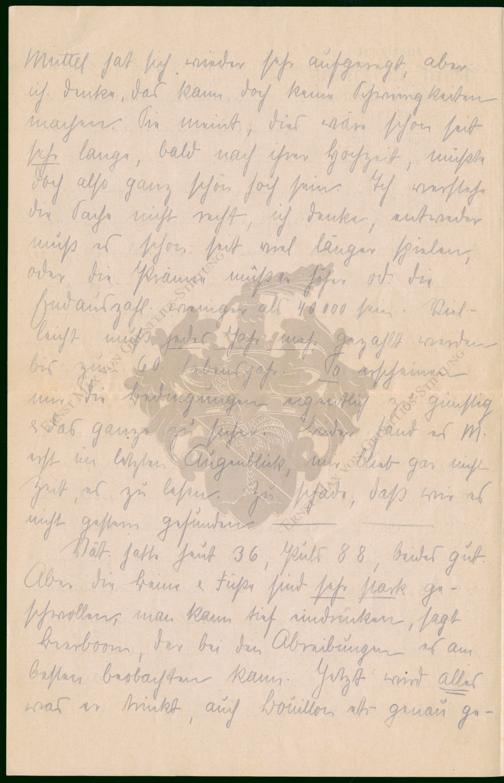 Muttel hat sich wieder sehr aufgeregt, aber
ich denke, das kann doch keine Schwierigkeiten
machen. Sie meint, dies wäre schon seit
sehr lange, bald nach ihrer Hochzeit, müßte
doch also ganz schön hoch sein. Ich verstehe
die Sache nicht recht, ich denke, entweder
muß es schon seit viel länger spielen,
oder die Prämie müßte höher od. die
Endauszahl. weniger als 40 000 sein. Viel-
leicht muß jedes Jahr mehr gezahlt werden
bis zum 60. Lebensjahr. So erscheinen
mir die Bedingungen eigentlich zu günstig
& das ganze zu sicher. Leider fand es M.
erst im letzten Augenblick, mir blieb gar nicht
Zeit, es zu lesen. Zu schade, daß wir es
nicht gestern gefunden
Vat. hatte heut 36, Puls 88, beides gut.
Aber die Beine & Füße sind sehr stark ge-
schwollen, man kann tief eindrücken, sagt
Beerboom, der bei den Abreibungen es am
besten beobachten kann. Jetzt wird alles
was er trinkt, auch Bouillon etc genau ge-
ERNST VON
STIFTUNG